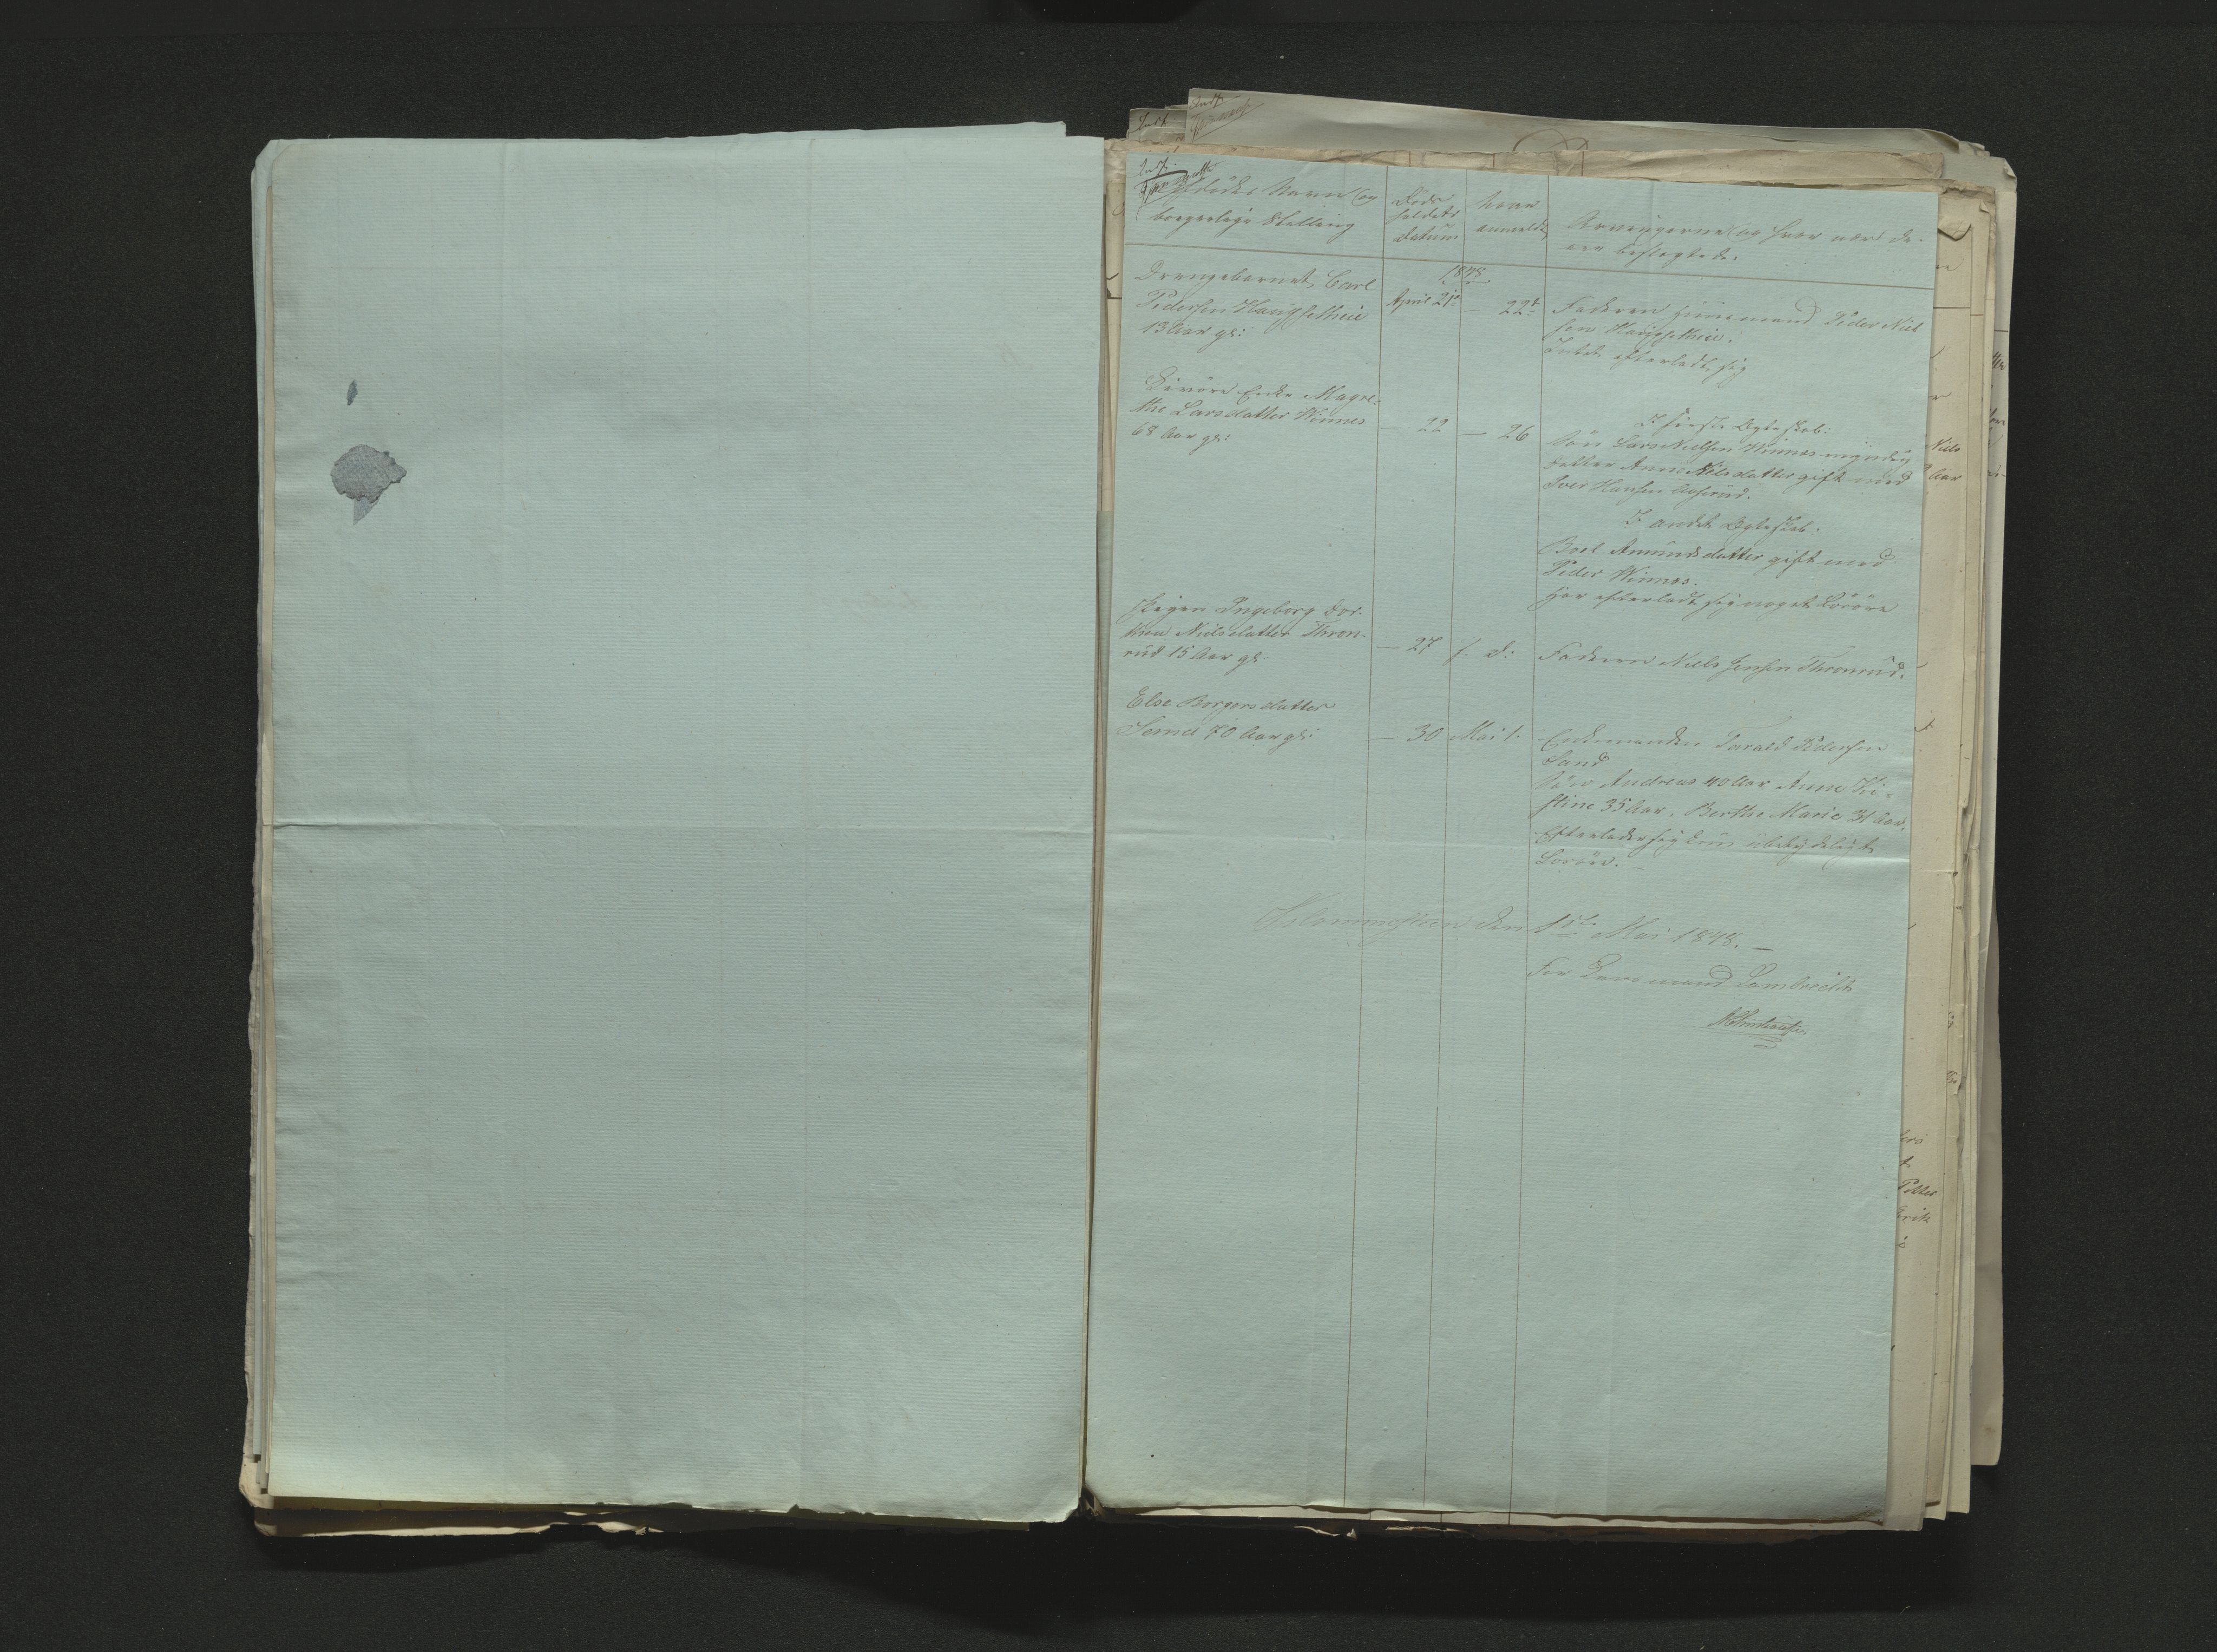 Afdödes Navn og
borgerlige Stilling
Døds
faldets
datum
Naar
anmeldt
Arvingerne og hvor nær de
ere beslægtede.
1848
Drengebarnet Carl
Pedersen
13 Aar gl:
April 21de
— 22de
Faderen Huusmand Peder Niel
sen
Intet efterladt sig
Enke Magre-
the Larsdatter Winnes
68 Aar gl:
— 22
— 26
I første Egteskab:
Søn Lars Nielsen Winnes myndig
Datter Anne Nilsdatter gift med
Iver Hansen
I andet Egteskab:
Boel Amundsdatter gift med
Peder Winnes.
Har efterladt sig noget Løsøre
Pigen Ingeborg Dor-
thea Nielsdatter Thron-
rud 15 Aar gl:
— 27
s. D:
Faderen Niels Jensen Thronrud.
Else Borgersdatter
70 Aar gl:
— 30
Mai 1.
Enkemanden Tarald Pedersen
Sand
Søn Andreas 40 Aar Anne Ki-
stine 35 Aar, Berthe Marie 31 Aar,
Efterlader sig kun ubetydeligt
Løsøre. —
den 1ste Mai 1848. —
For Lensmand Lambrechts